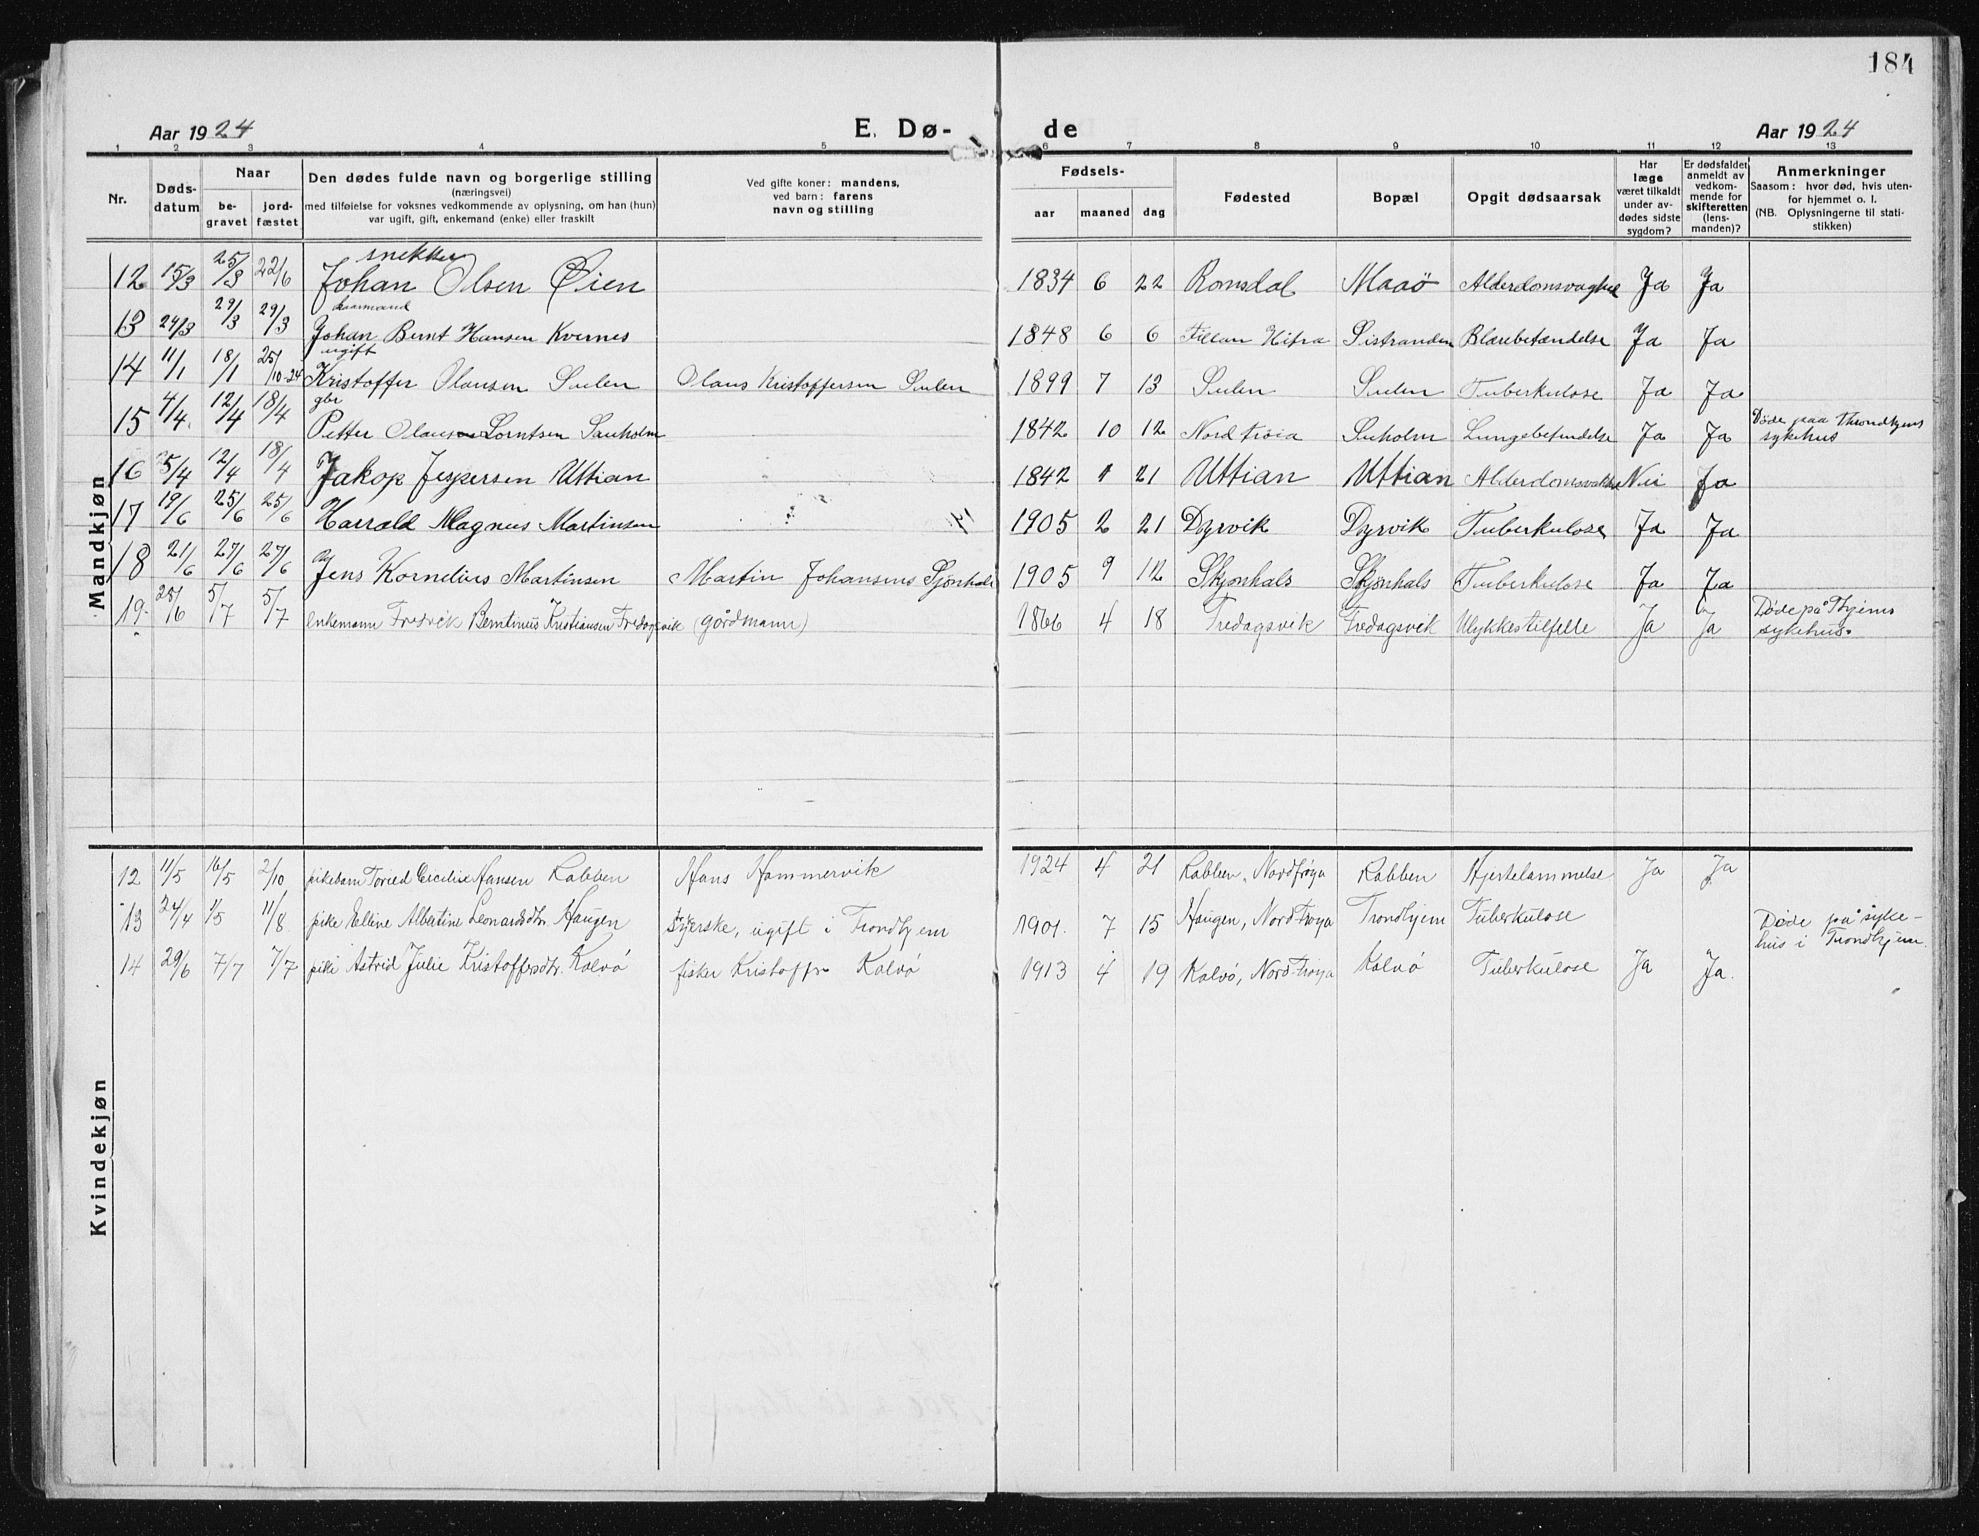 184
Aar 1924 E. Dø- de Aar 1924
1 2 3 4 5 6 7 8 9 10 11 12 13
Nr. Døds-datum Naar be-gravet jord-fæstet Den dødes fulde navn og borgerlige stilling (næringsvei) med tilføielse for voksnes vedkommende av oplysning, om han (hun) var ugift, gift, enkemand (enke) eller fraskilt Ved gifte koner: mandens, ved barn: farens navn og stilling Fødsels- aar maaned dag Fødested Bopæl Opgit dødsaarsak Har læge været tilkaldt under av-dødes sidste sygdom? Er dødsfaldet anmeldt av vedkom-mende for skifteretten (lens-manden)? Anmerkninger Saasom: hvor død, hvis uten-for hjemmet o. l. (NB. Oplysningerne til stati-stikken)
Mandkjøn
snekker
12 15/3 25/3 22/6 Johan Olsen Øien 1834 6 22 Romsdal Maaø Alderdomsvaghed Ja Ja
kaarmand
13 24/3 29/3 29/3 Johan Bernt Hansen Kvernes 1848 6 6 Fillan Hitra Sistranden Blærebetændelse Ja Ja
ugift
14 11/1 18/1 25/10-24 Kristoffer Olausen Sulen Olaus Kristoffersen Sulen 1899 7 13 Sulen Sulen Tuberkulose Ja Ja
gbr
15 4/4 12/4 18/4 Petter Olaus Lorntsen Sauholm 1842 10 12 Nord frøia Suholm Lungebetendelse Ja Ja Døde paa Throndhjems sykehus
16 5/4 12/4 18/4 Jakop Jespersen Uttian 1842 1 21 Uttian Uttian Nei Ja
17 19/6 25/6 25/6 Harrald Magnus Martinsen 1905 2 21 Dyrvik Dyrvik Tuberkulose Ja Ja
18 21/6 27/6 27/6 Jens Kornelius Martinsen Martin Johansens Sjønhals 1905 9 12 Skjønhals Skjønhals Tuberkulose Ja Ja
19. 25/6 5/7 5/7 enkemann Fredrik Berntinius Kristiansen Fredagsvik (gårdmann) 1866 4 18 Fredagsvik Fredagsvik Ulykkestilfelle Ja Ja Døde på Thjems sykehus.
Kvindekjøn
12 11/5 16/5 2/10 pikebarn Toried Cecilie Hansen Rabben Hans Hammervik 1924 4 21 Rabben, Nordfrøya Rabben Hjertelammelse Ja Ja
13 24/4 1/5 11/8 pike Elline Albertine Leonardsdtr. Haugen syerske, ugift i Trondhjem 1901. 7 15 Haugen, Nord-Frøya Trondhjem Tuberkulose Døde på syke-hus i Trondhjem.
14 29/6 7/7 7/7 pike Astrid Julie Kristoffersdtr. Kalvø fisker Kristoffer Kalvø 1913 4 19 Kalvø, Nord-Frøya Kalvø Tuberkulose Ja Ja.